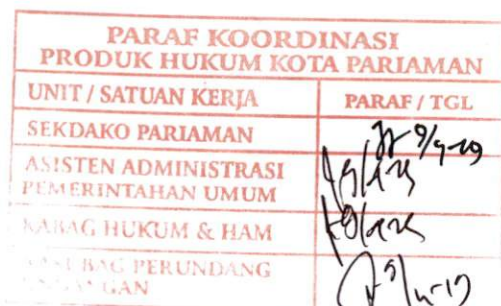 PARAF KOORDINASI
PRODUK HUKUM KOTA PARIAMAN
UNIT / SATUAN KERJA PARAF / TGL
SEKDAKO PARIAMAN
ASISTEN ADMINISTRASI
PEMERINTAHAN UMUM
KABAG HUKUM & HAM
KASUBBAG PERUNDANG
UNDANGAN